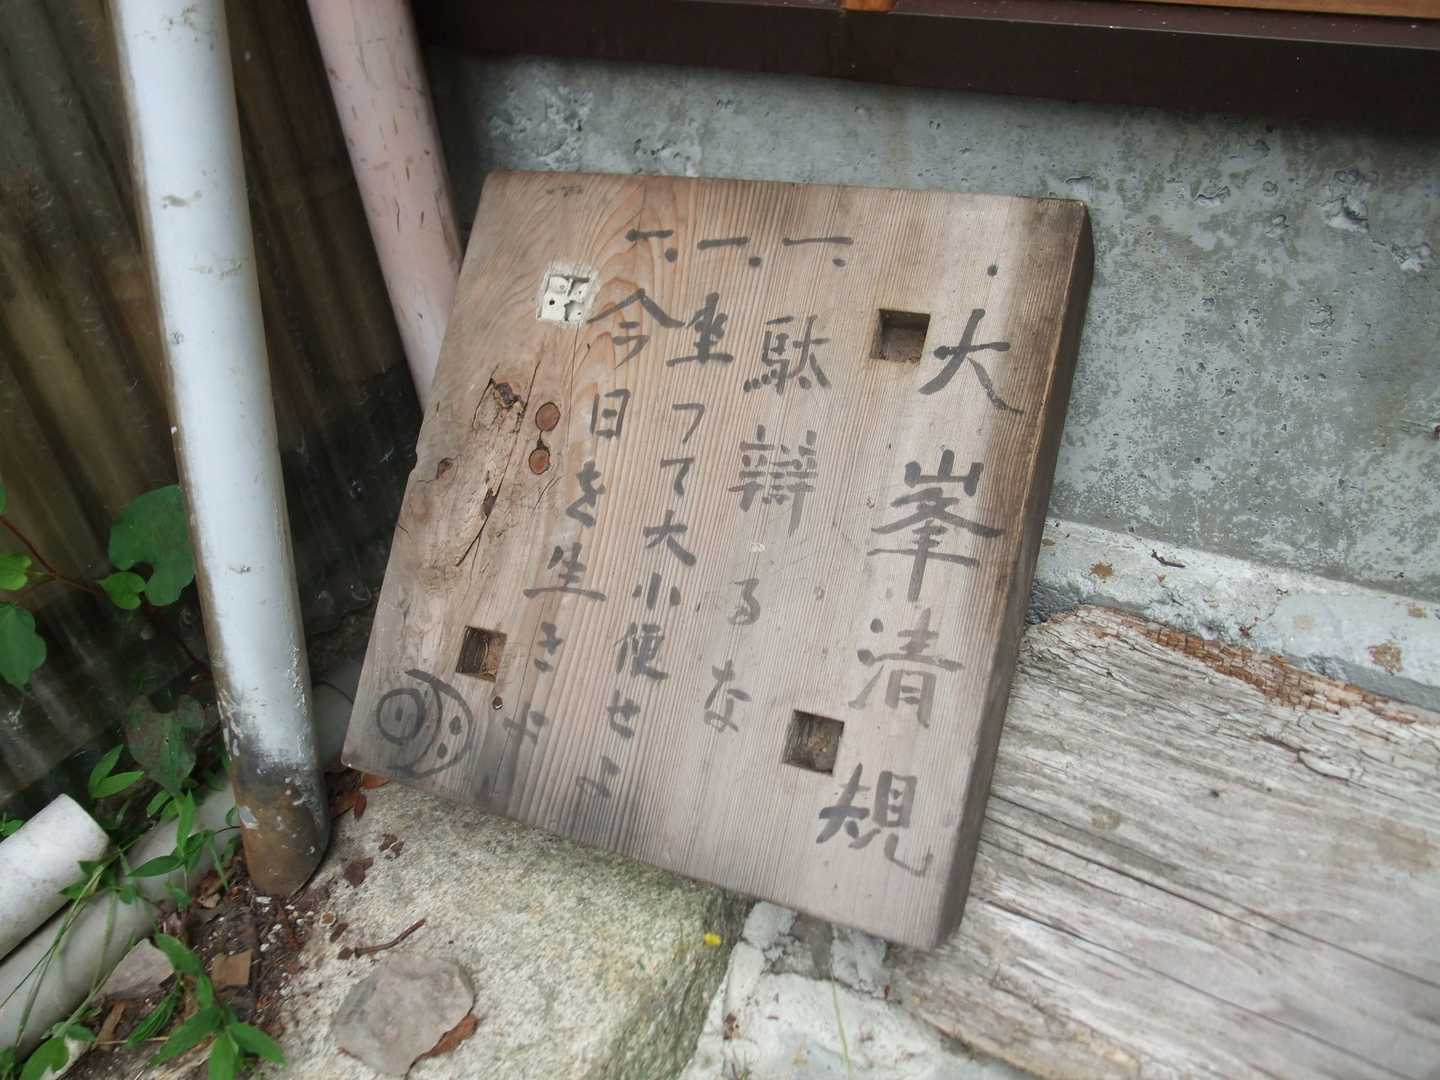 大峯清規
一、駄辯るな
一、坐って大小便せよ
一、今日を生きよ